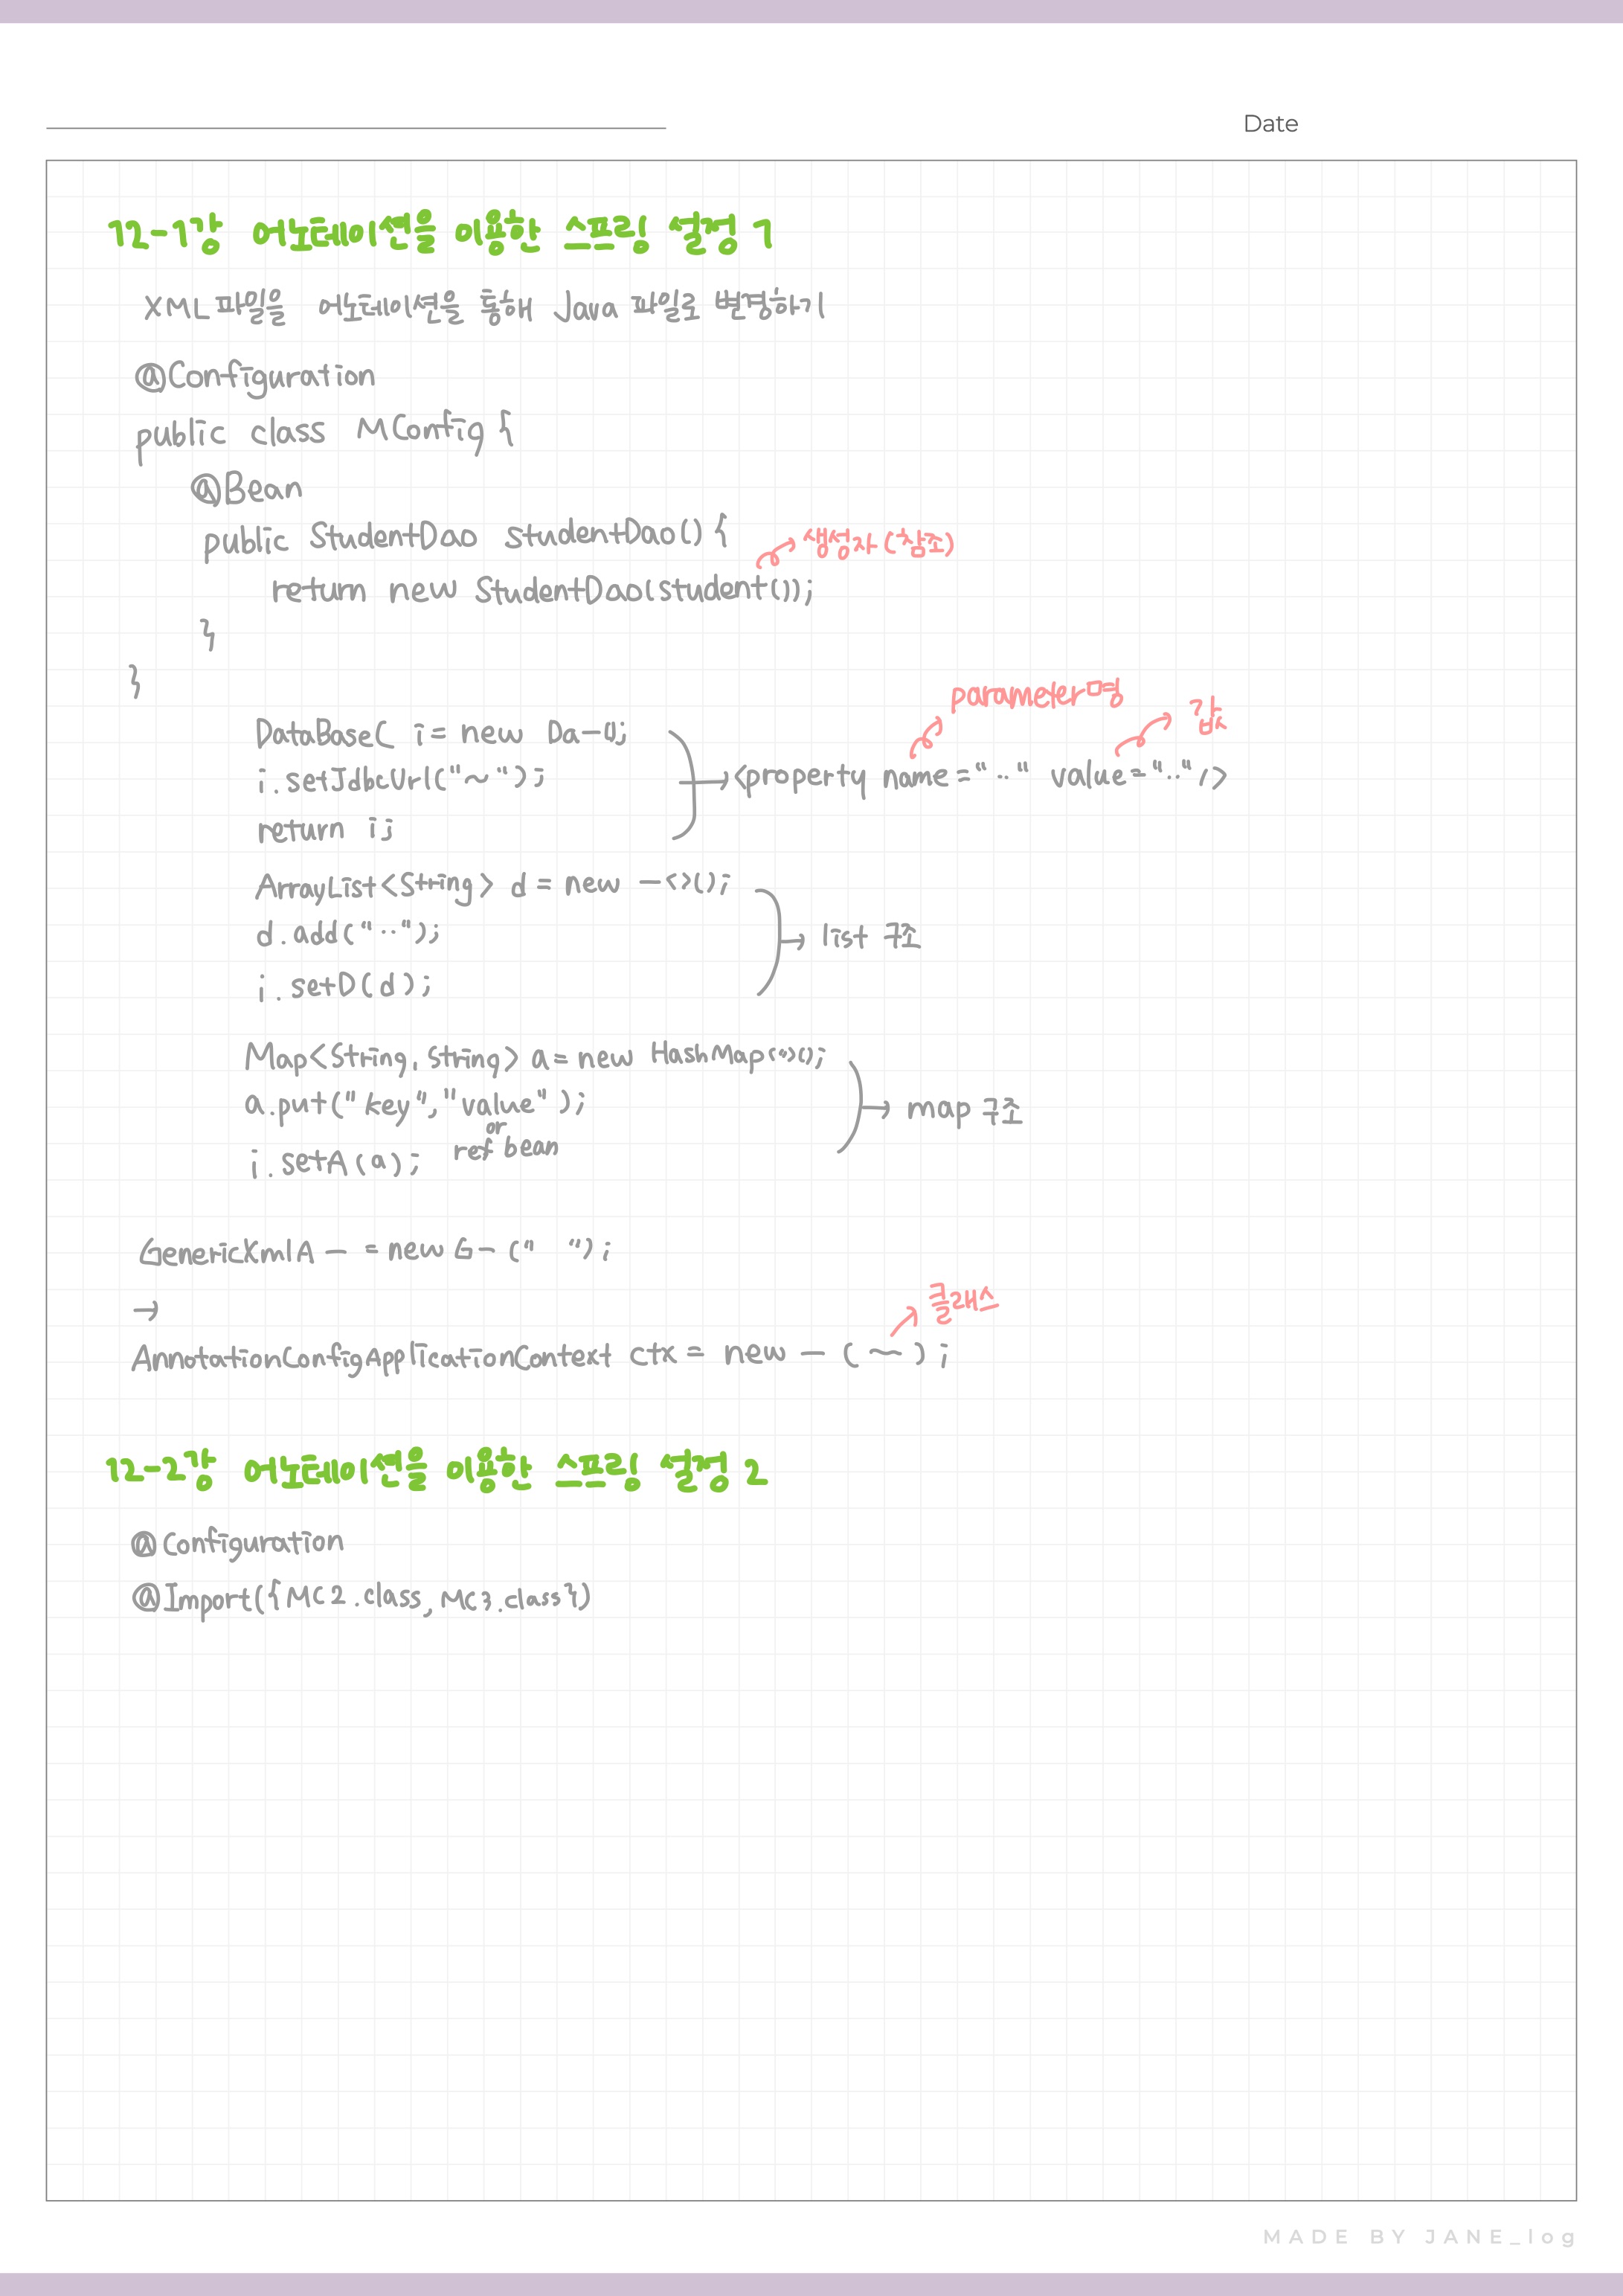 Date
12-1강 어노테이션을 이용한 스프링 설정 1
XML파일을 어노테이션을 통해 Java 파일로 변경하기
@Configuration
public class MConfig {
@Bean
public StudentDao studentDao() {
생성자 (참조)
return new StudentDao(student());
}
}
parameter명
값
DataBaseC i = new Da-();
i.setJdbcUrl("~");
<property name=".." value=".."/>
return i;
ArrayList<String> d = new -<>();
d.add("..");
→ list 구조
i.setD(d);
Map<String, String> a = new HashMap<>();
a.put("key", "value");
→ map 구조
or
ref bean
i.setA(a);
GenericXmlA- = new G-(" ");
→
클래스
AnnotationConfigApplicationContext ctx = new - (~);
12-2강 어노테이션을 이용한 스프링 설정 2
@Configuration
@Import({MC2.class, MC3.class})
MADE BY JANE_log